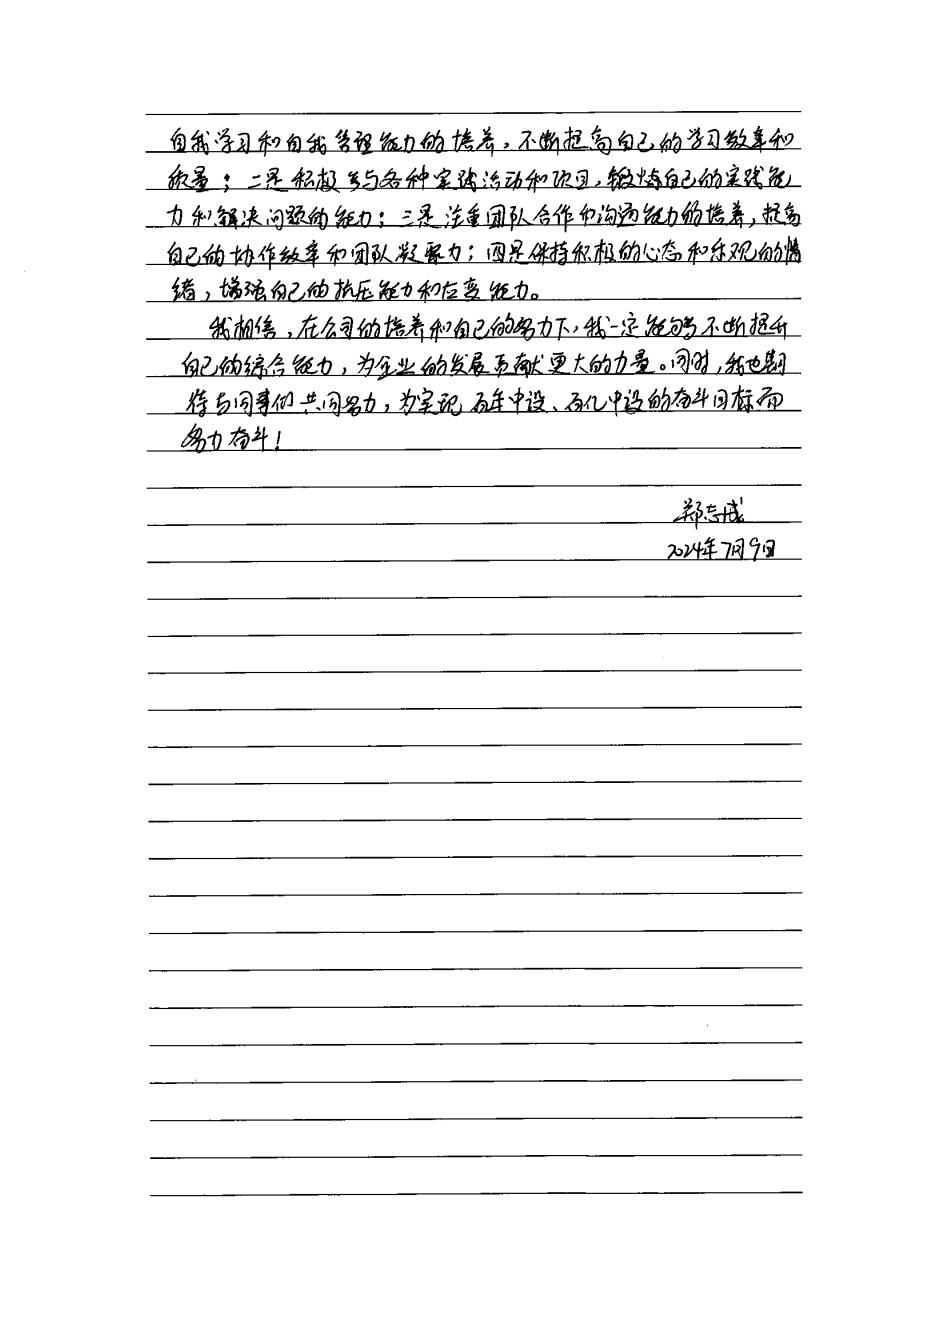 自我学习和自我管理能力的培养，不断提高自己的学习效率和
质量；二是积极参与各种实践活动和项目，锻炼自己的实践能
力和解决问题的能力；三是注重团队合作和沟通能力的培养，提高
自己的协作效率和团队凝聚力；四是保持积极的心态和乐观的情
绪，增强自己的抗压能力和应变能力。
我相信，在公司的培养和自己的努力下，我一定能够不断提升
自己的综合能力，为企业的发展贡献更大的力量。同时，我也期
待与同事们共同努力，为实现百年中设、百亿中设的奋斗目标而
努力奋斗！
郑志成
2024年7月9日